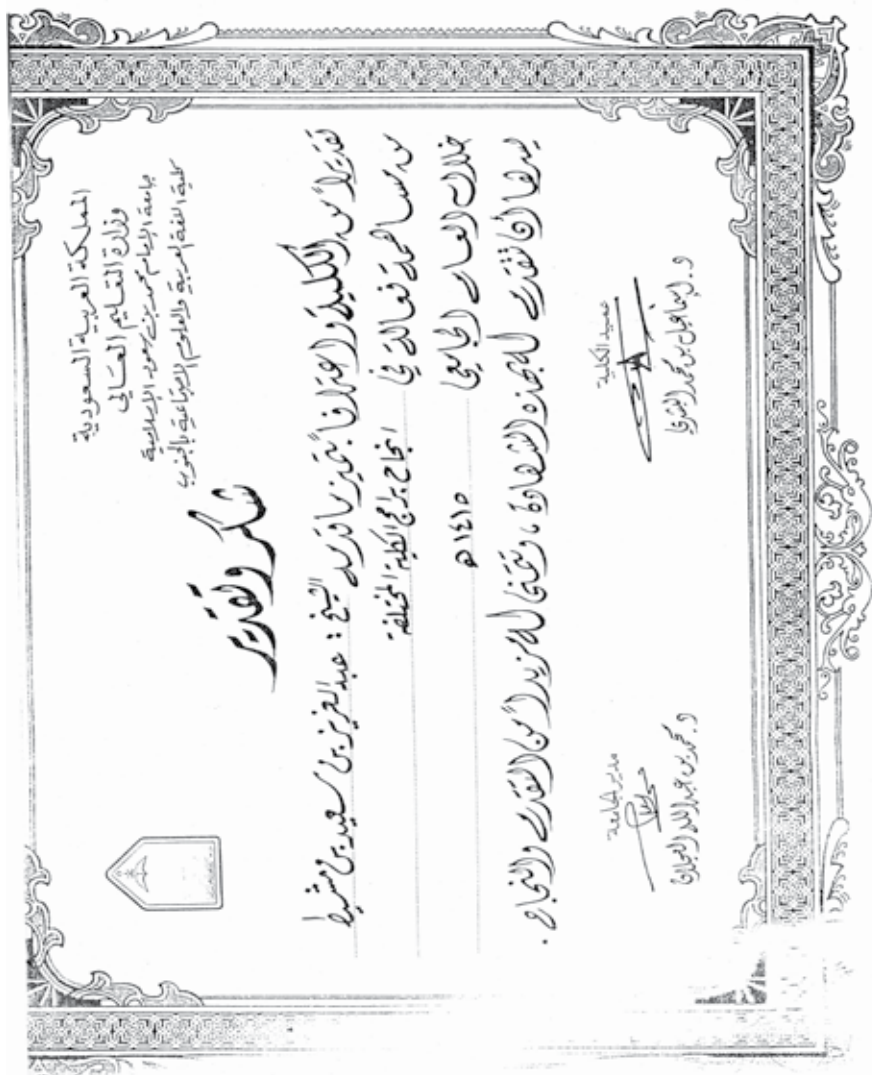 المملكة العربية السعودية
وزارة التعليم العالي
جامعة الإمام محمد بن سعود الإسلامية
كلية اللغة العربية والعلوم الاجتماعية بالجنوب
شكر وتقدير
تقديراً من الكلية واعترافاً بتميز ما قدمه الشيخ : عبد العزيز بن سعيد بن مشيط
من مساهمة فعالة في انجاح برامج الكلية المختلفة
خلال العام الجامعي ١٤١٥ هـ
يسرها أن تتقدم له بهذه الشهادة ، وتتمنى له مزيداً من التقدم والنجاح .
عميد الكلية
د. إسماعيل بن محمد البشري
مدير الجامعة
د. محمد بن عبد الله العجلان